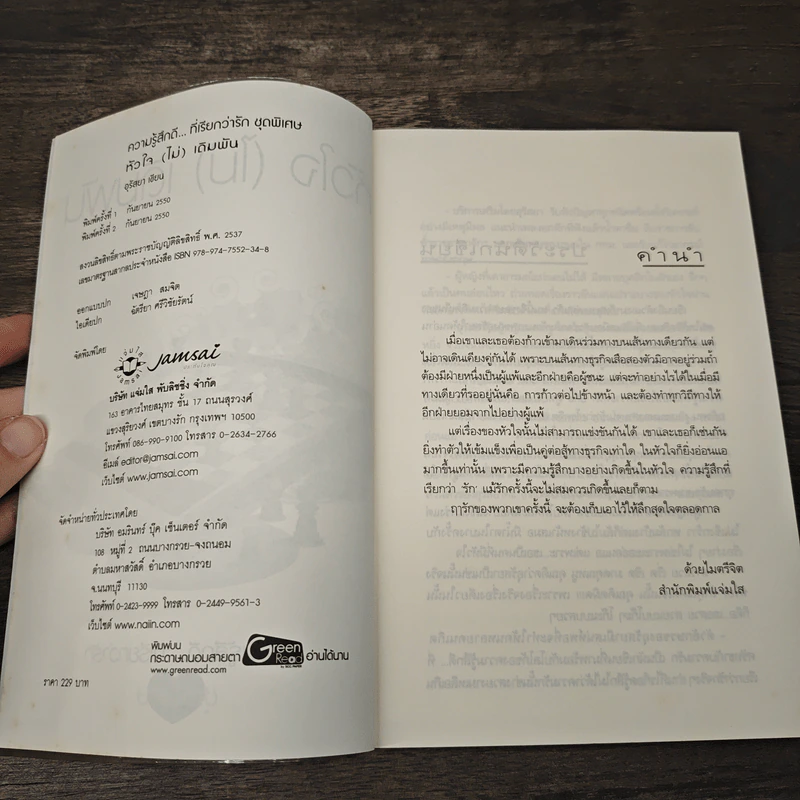 ความรู้สึกดี... ที่เรียกว่ารัก ชุดพิเศษ
หัวใจ (ไม่) เดิมพัน
อุรัสยา เขียน
พิมพ์ครั้งที่ 1 กันยายน 2550
พิมพ์ครั้งที่ 2 กันยายน 2550
สงวนลิขสิทธิ์ตามพระราชบัญญัติลิขสิทธิ์ พ.ศ. 2537
เลขมาตรฐานสากลประจำหนังสือ ISBN 978-974-7552-34-8
ออกแบบปก เจษฎา สมจิต
ไอเดียปก ฉัตรียา ศรีวิชัยรัตน์
จัดพิมพ์โดย
jamsai
บริษัท แจ่มใส พับลิชชิ่ง จำกัด
163 อาคารไทยสมุทร ชั้น 17 ถนนสุรวงศ์
แขวงสุริยวงศ์ เขตบางรัก กรุงเทพฯ 10500
โทรศัพท์ 086-990-9100 โทรสาร 0-2634-2766
อีเมล์ editor@jamsai.com
เว็บไซต์ www.jamsai.com
จัดจำหน่ายทั่วประเทศโดย
บริษัท อมรินทร์ บุ๊ค เซ็นเตอร์ จำกัด
108 หมู่ที่ 2 ถนนบางกรวย-จงถนอม
ตำบลมหาสวัสดิ์ อำเภอบางกรวย
จ.นนทบุรี 11130
โทรศัพท์ 0-2423-9999 โทรสาร 0-2449-9561-3
เว็บไซต์ www.naiin.com
พิมพ์บน
กระดาษถนอมสายตา Green Read อ่านได้นาน
www.greenread.com
ราคา 229 บาท
คำนำ
เมื่อเขาและเธอต้องก้าวเข้ามาเดินร่วมทางบนเส้นทางเดียวกัน แต่
ไม่อาจเดินเคียงคู่กันได้ เพราะบนเส้นทางธุรกิจเสือสองตัวมิอาจอยู่ร่วมถ้ำ
ต้องมีฝ่ายหนึ่งเป็นผู้แพ้และอีกฝ่ายคือผู้ชนะ แต่จะทำอย่างไรได้ในเมื่อมี
ทางเดียวที่รออยู่นั่นคือ การก้าวต่อไปข้างหน้า และต้องทำทุกวิถีทางให้
อีกฝ่ายยอมจากไปอย่างผู้แพ้
แต่เรื่องของหัวใจนั้นไม่สามารถแข่งขันกันได้ เขาและเธอก็เช่นกัน
ยิ่งทำตัวให้เข้มแข็งเพื่อเป็นคู่ต่อสู้ทางธุรกิจเท่าใด ในหัวใจก็ยิ่งอ่อนแอ
มากขึ้นเท่านั้น เพราะมีความรู้สึกบางอย่างเกิดขึ้นในหัวใจ ความรู้สึกที่
เรียกว่า 'รัก' แม้รักครั้งนี้จะไม่สมควรเกิดขึ้นเลยก็ตาม
ฤๅรักของพวกเขาครั้งนี้ จะต้องเก็บเอาไว้ให้ลึกสุดใจตลอดกาล
ด้วยไมตรีจิต
สำนักพิมพ์แจ่มใส